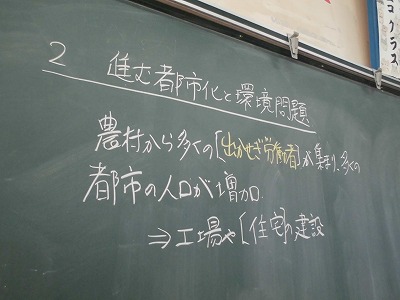 2 進む都市化と環境問題
農村から多くの[出かせぎ労働者]が集まり、多くの
都市の人口が増加.
⇒工場や[住宅]の建設
コクラス